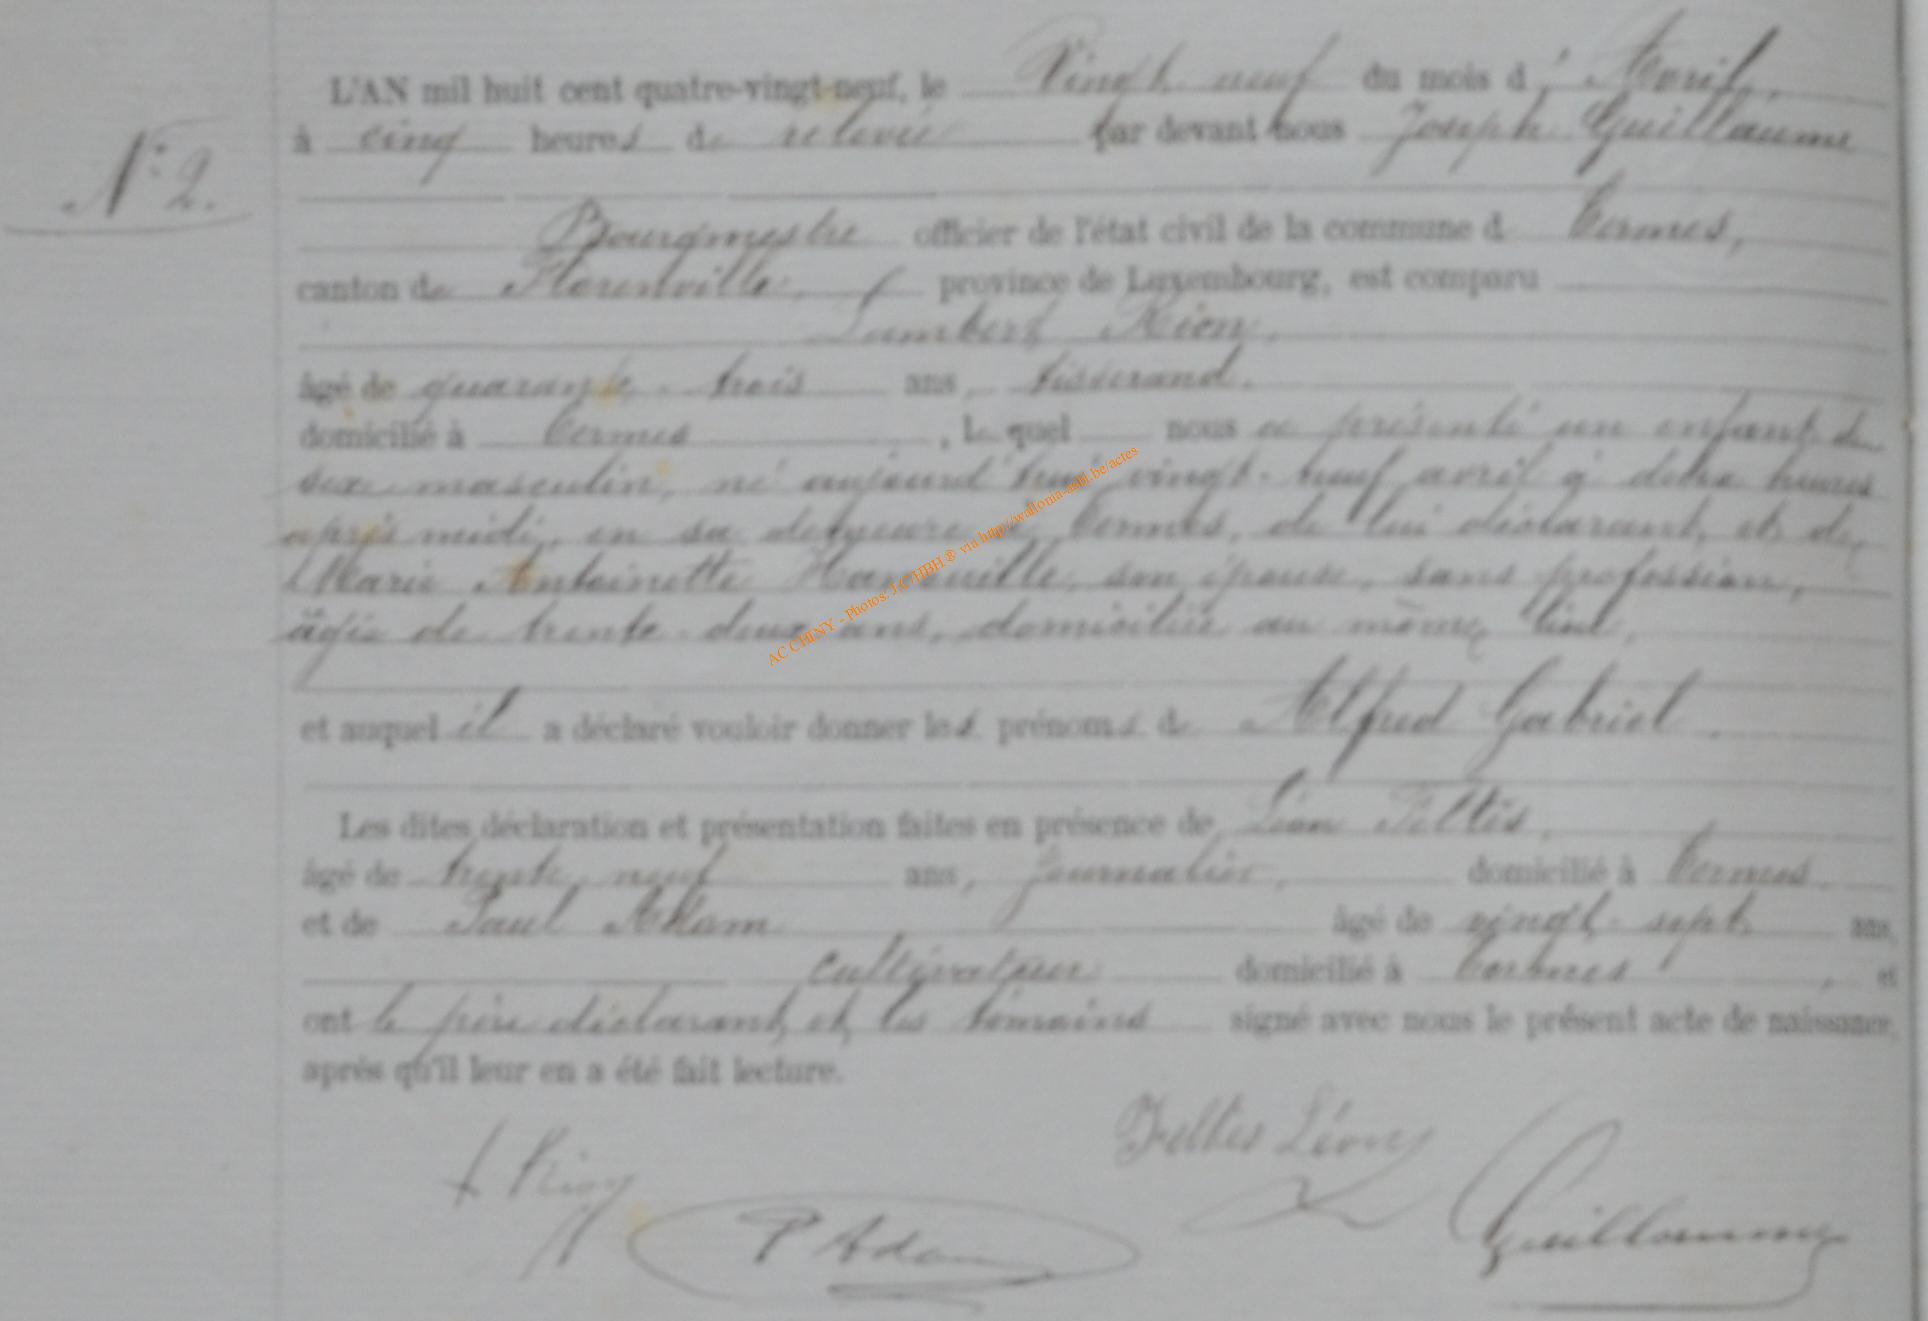 L'AN mil huit cent quatre-vingt-neuf, le Vingt neuf du mois d' Avril,
N° 2.
à cinq heures de relevée par devant nous Joseph Guillaume
Bourgmestre officier de l'état civil de la commune d Termes,
canton de Florenville, province de Luxembourg, est comparu
Lambert Rion,
âgé de quarante-trois ans, tisserand.
domicilié à Termes, lequel nous a présenté un enfant de
sexe masculin, né aujourd'hui vingt-neuf avril à deux heures
après midi, en sa demeure à Termes, de lui déclarant, et de,
Marie Antoinette son épouse, sans profession,
âgée de trente-deux ans, domiciliée au même lieu,
et auquel il a déclaré vouloir donner les prénoms de Alfred Gabriel.
Les dites déclaration et présentation faites en présence de Léon Feltés,
âgé de trente neuf ans, journalier, domicilié à Termes
et de Paul Adam âgé de vingt-sept ans,
cultivateur domicilié à Termes, et
ont le père déclarant, et les témoins signé avec nous le présent acte de naissance,
après qu'il leur en a été fait lecture.
Feltes Léon
L Rion
P Adam
Guillaume
AC CHINY - Photos: J.C. HBH ® via http://wallonia-asbl.be/actes